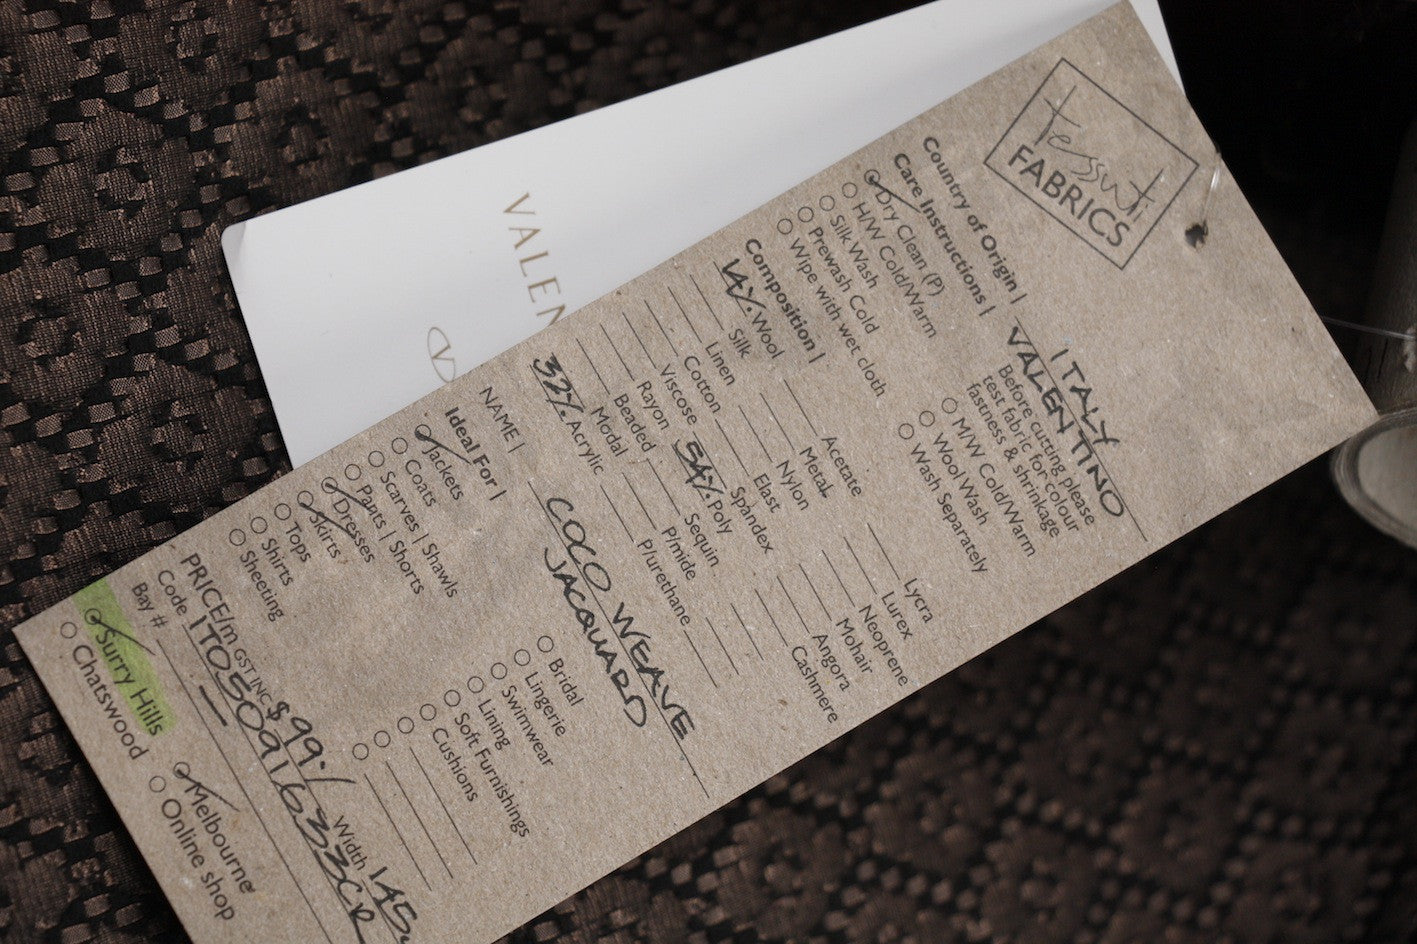 Tessuti
FABRICS
Country of Origin | ITALY
VALENTINO
Care Instructions | Before cutting please
test fabric for colour
fastness & shrinkage
Dry Clean (P)
H/W Cold/Warm
M/W Cold/Warm
Silk Wash
Wool Wash
Prewash Cold
Wash Separately
Wipe with wet cloth
Composition |
14% Wool
Acetate
Lycra
Silk
Metal
Lurex
Linen
Nylon
Neoprene
Cotton
Elast
Mohair
Viscose
Spandex
Angora
Rayon
54% Poly
Cashmere
Beaded
Sequin
Modal
P/mide
32% Acrylic
P/urethane
NAME | COCO WEAVE
JACQUARD
Ideal For |
Jackets
Bridal
Coats
Lingerie
Scarves | Shawls
Swimwear
Pants | Shorts
Lining
Dresses
Soft Furnishings
Skirts
Cushions
Tops
Shirts
Sheeting
PRICE/m GST INC $99./ Width 145
Code
Bay # —
Surry Hills
Melbourne
Chatswood
Online shop
VALEN